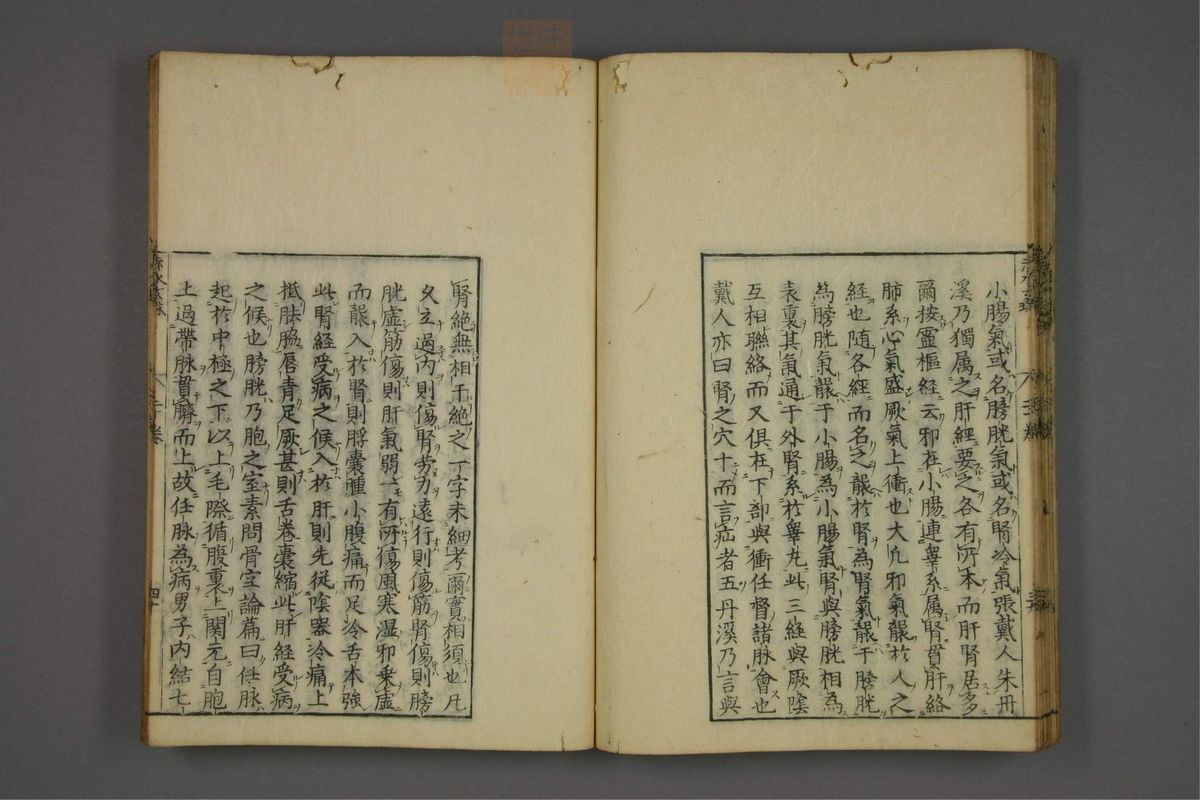 小腸氣或名膀胱氣或名腎冷氣張戴人朱丹
溪乃獨属之肝經要之各有所本而肝腎居多
爾按靈樞經云邪在小腸連睾系属腎貫肝絡
肺系心氣盛厥氣上衝也大凢邪氣襲於人之
経也随各經而名之襲於腎為腎氣襲于膀胱
為膀胱氣襲于小腸為小腸氣腎與膀胱相為
表裏其氣通于外腎系於睾丸此三経與厥陰
互相聯絡而又俱在下部與衝任督諸脉會也
戴人亦曰腎之穴十而言疝者五丹溪乃言與
腎絶無相干絶之一字未細考爾實相須也凢
久立過内則傷腎劳力遠行則傷筋腎傷則膀
胱虚筋傷則肝氣弱一有所傷風寒湿邪乗虚
而襲入於腎則脬囊腫小腹痛而足冷舌本強
此腎経受病之候入於肝則先従陰器冷痛上
抵胠脇唇青足厥甚則舌卷囊縮此肝経受病
之候也膀胱乃胞之室素問骨空論篇曰任脉
起於中極之下以上毛際循腹裏上関元自胞
上過帶脉貫臍而上故任脉為病男子内結七